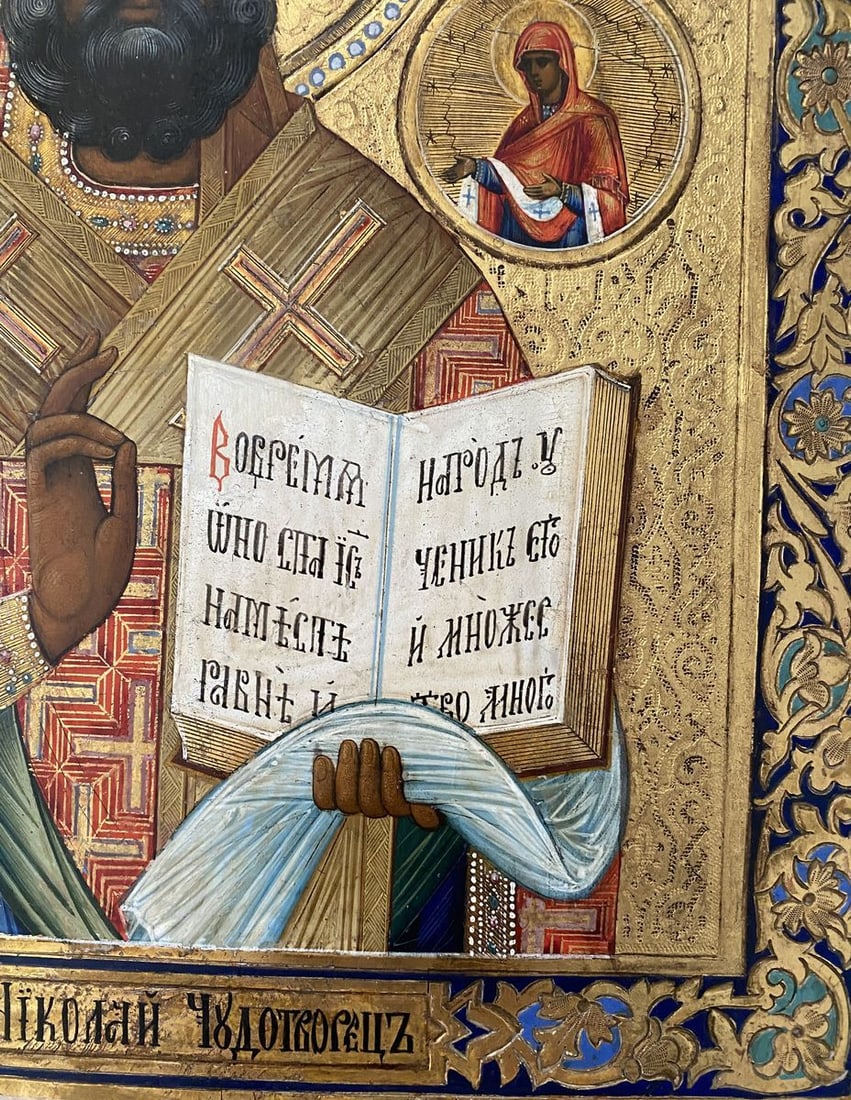 Во врéмѧ
ѡ҆́но ста і҆с҃ъ
на мѣ́стѣ
ра́внѣ и҆
наро́дъ ꙋ҆
ченикъ є҆гѡ̀
и҆ мно́жее
ство мног̾
Нїколай Чꙋдотворецъ